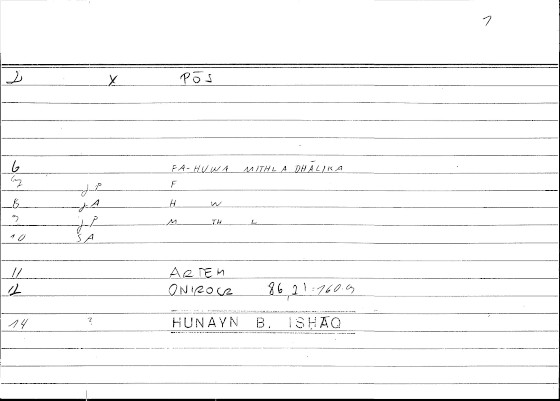 1
2 X PŌS
6 FA-HUWA MITHLA DHĀLIKA
7 J.P F
8 J.A H W
9 J.P M TH L
10 SA
11 ARTEM
12 ONIROCR 86,21:160.9
14 ? HUNAYN B. ISHĀQ